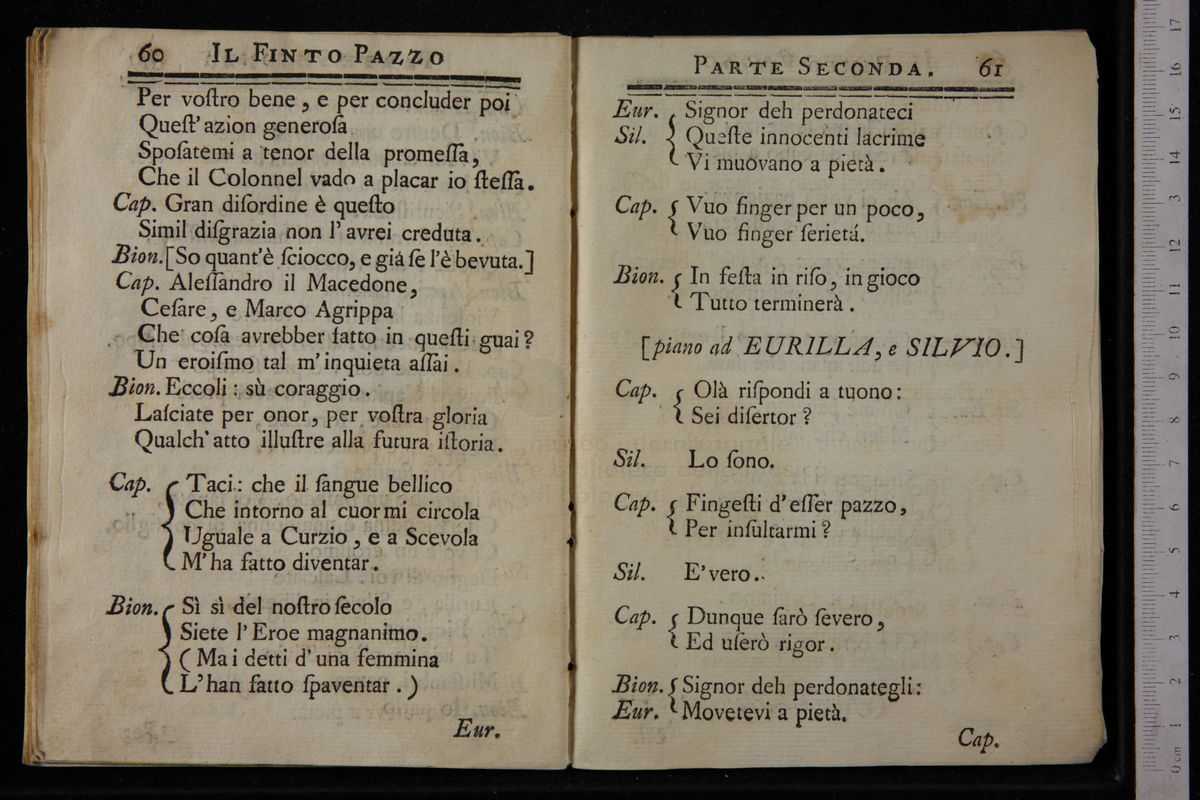 60 IL FINTO PAZZO
Per voſtro bene, e per concluder poi
Queſt' azion generoſa
Spoſatemi a tenor della promeſſa,
Che il Colonnel vado a placar io ſteſſa.
Cap. Gran diſordine è queſto
Simil diſgrazia non l' avrei creduta.
Bion. [So quant'è ſciocco, e giá ſe l'è bevuta.]
Cap. Aleſſandro il Macedone,
Ceſare, e Marco Agrippa
Che coſa avrebber fatto in queſti guai?
Un eroiſmo tal m' inquieta aſſai.
Bion. Eccoli: sù coraggio.
Laſciate per onor, per voſtra gloria
Qualch' atto illuſtre alla futura iſtoria.
Cap. Taci: che il ſangue bellico
Che intorno al cuor mi circola
Uguale a Curzio, e a Scevola
M' ha fatto diventar.
Bion. Sì sì del noſtro ſecolo
Siete l' Eroe magnanimo.
(Mai detti d' una femmina
L' han fatto ſpaventar.)
Eur.
PARTE SECONDA. 61
Eur. Signor deh perdonateci
Sil. Queſte innocenti lacrime
Vi muovano a pietà.
Cap. Vuo finger per un poco,
Vuo finger ſerietá.
Bion. In feſta in riſo, in gioco
Tutto terminerà.
[piano ad EURILLA, e SILVIO.]
Cap. Olà riſpondi a tuono:
Sei diſertor?
Sil. Lo ſono.
Cap. Fingeſti d' eſſer pazzo,
Per inſultarmi?
Sil. E' vero.
Cap. Dunque ſarò ſevero,
Ed uſerò rigor.
Bion. Signor deh perdonategli:
Eur. Movetevi a pietà.
Cap.
0 cm 1 2 3 4 5 6 7 8 9 10 11 12 13 14 15 16 17